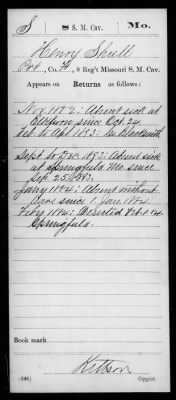 S 8 S. M. Cav. Mo.
Henry Shull
Pvt, Co. H, 8 Reg't Missouri S. M. Cav.
Appears on Returns as follows:
Nov. 1862: Absent sick at
since Oct. 24.
Feb. to Apl. 1863: Co. Blacksmith
Sept to Dec. 1863: Absent sick
at Springfield Mo. since
Sep. 25, 1863.
Jany 1864: Absent without
leave since 1 Jan. 1864
Feby 1864: Deserted Feb.
Springfield.
Book mark
(546) Kittson Copyist.